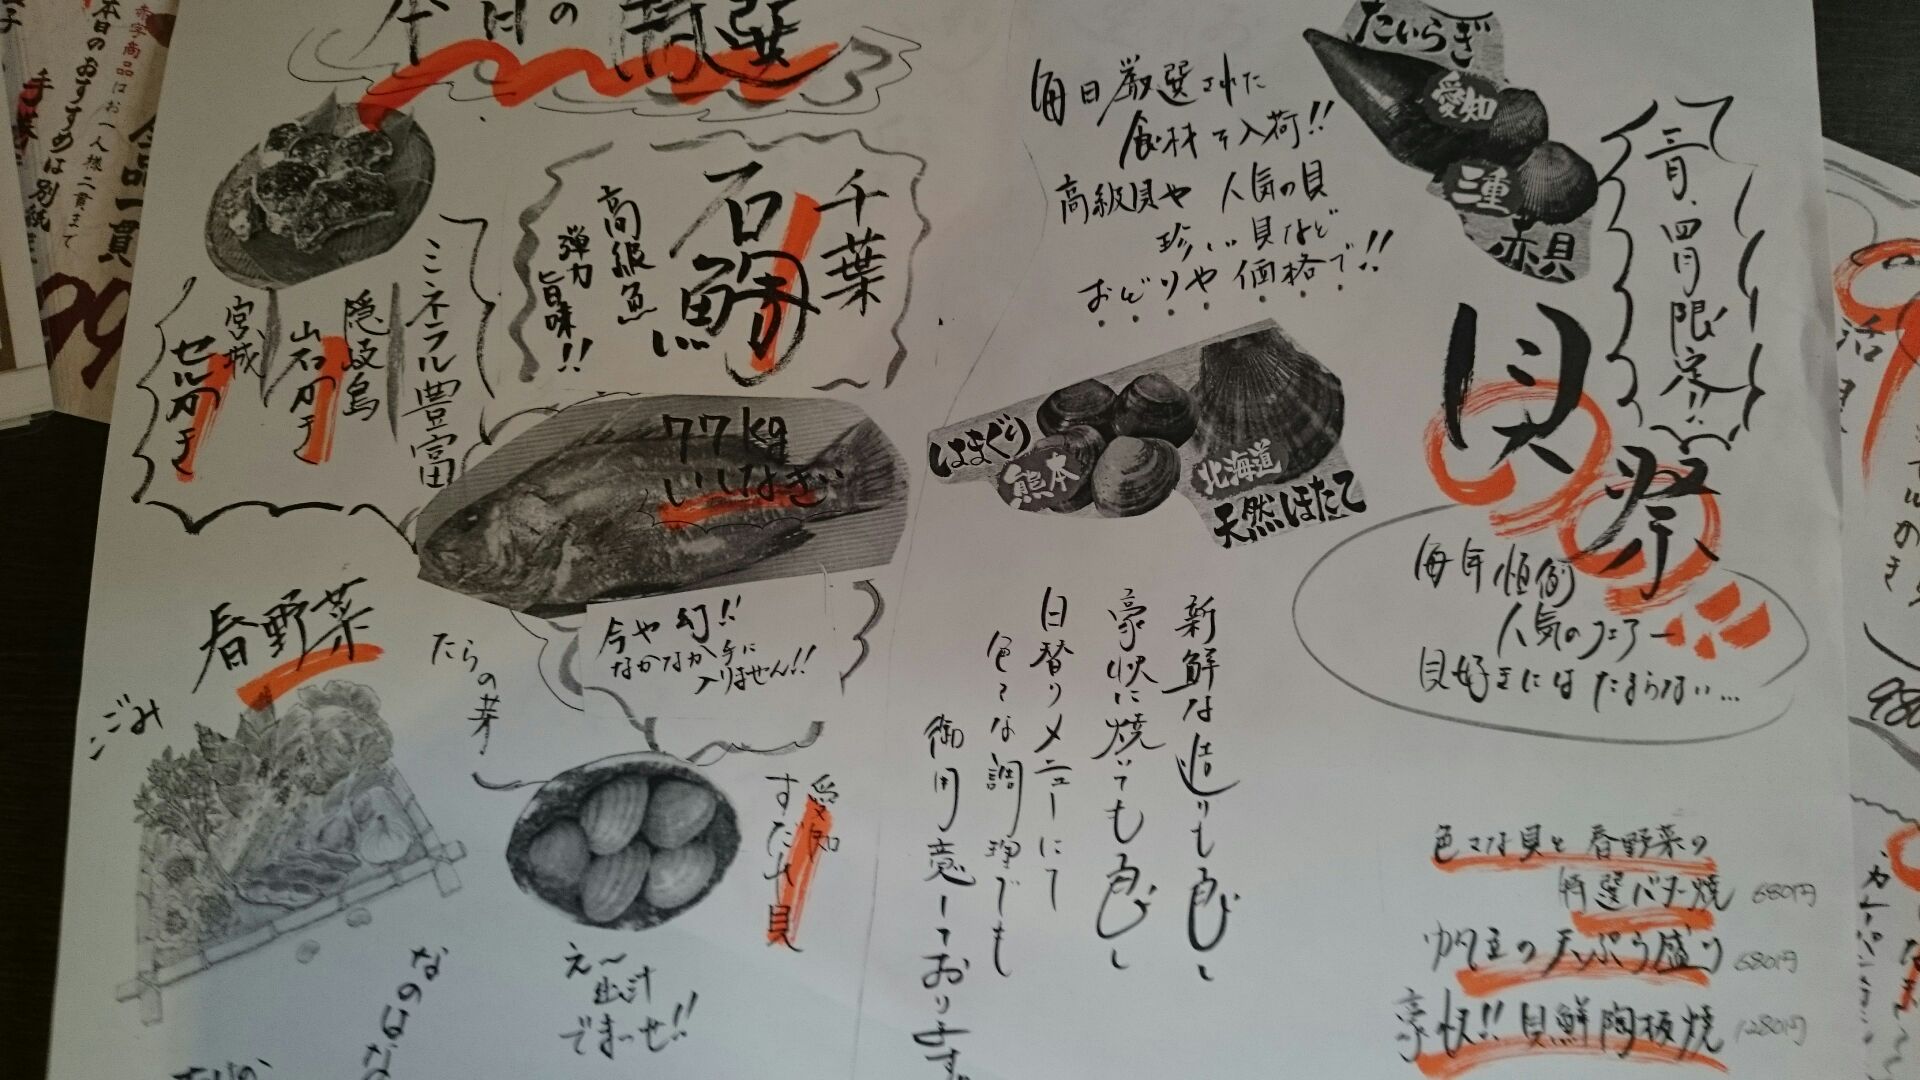 本日の特選
毎日厳選された
食材を入荷!!
高級貝や 人気の貝
珍しい貝など
おどりや価格で!!
たいらぎ
愛知
三重
赤貝
三月、四月限定!!
貝祭
毎年恒例
人気のフェアー
貝好きにはたまらない…
はまぐり
熊本
北海道
天然ほたて
新鮮な造りも良し
豪快に焼いても良し
日替りメニューにて
色々な調理でも
御用意しております。
色々な貝と春野菜の
特選バター焼 680円
の天ぷら盛り 680円
豪快!!貝鮮陶板焼 1280円
千葉
石鯛
高級魚
弾力
旨味!!
ミネラル豊富
隠岐島
岩ガキ
宮城
セルガキ
77kg
いしなぎ
今や幻!!
なかなか手に
入りません!!
春野菜
たらの芽
ごみ
なのはな
愛知
すだれ貝
え〜
出汁
でまっせ!!
赤字商品にお一人様二貫まて
本日のおすすめは別紙
一貫
99
活